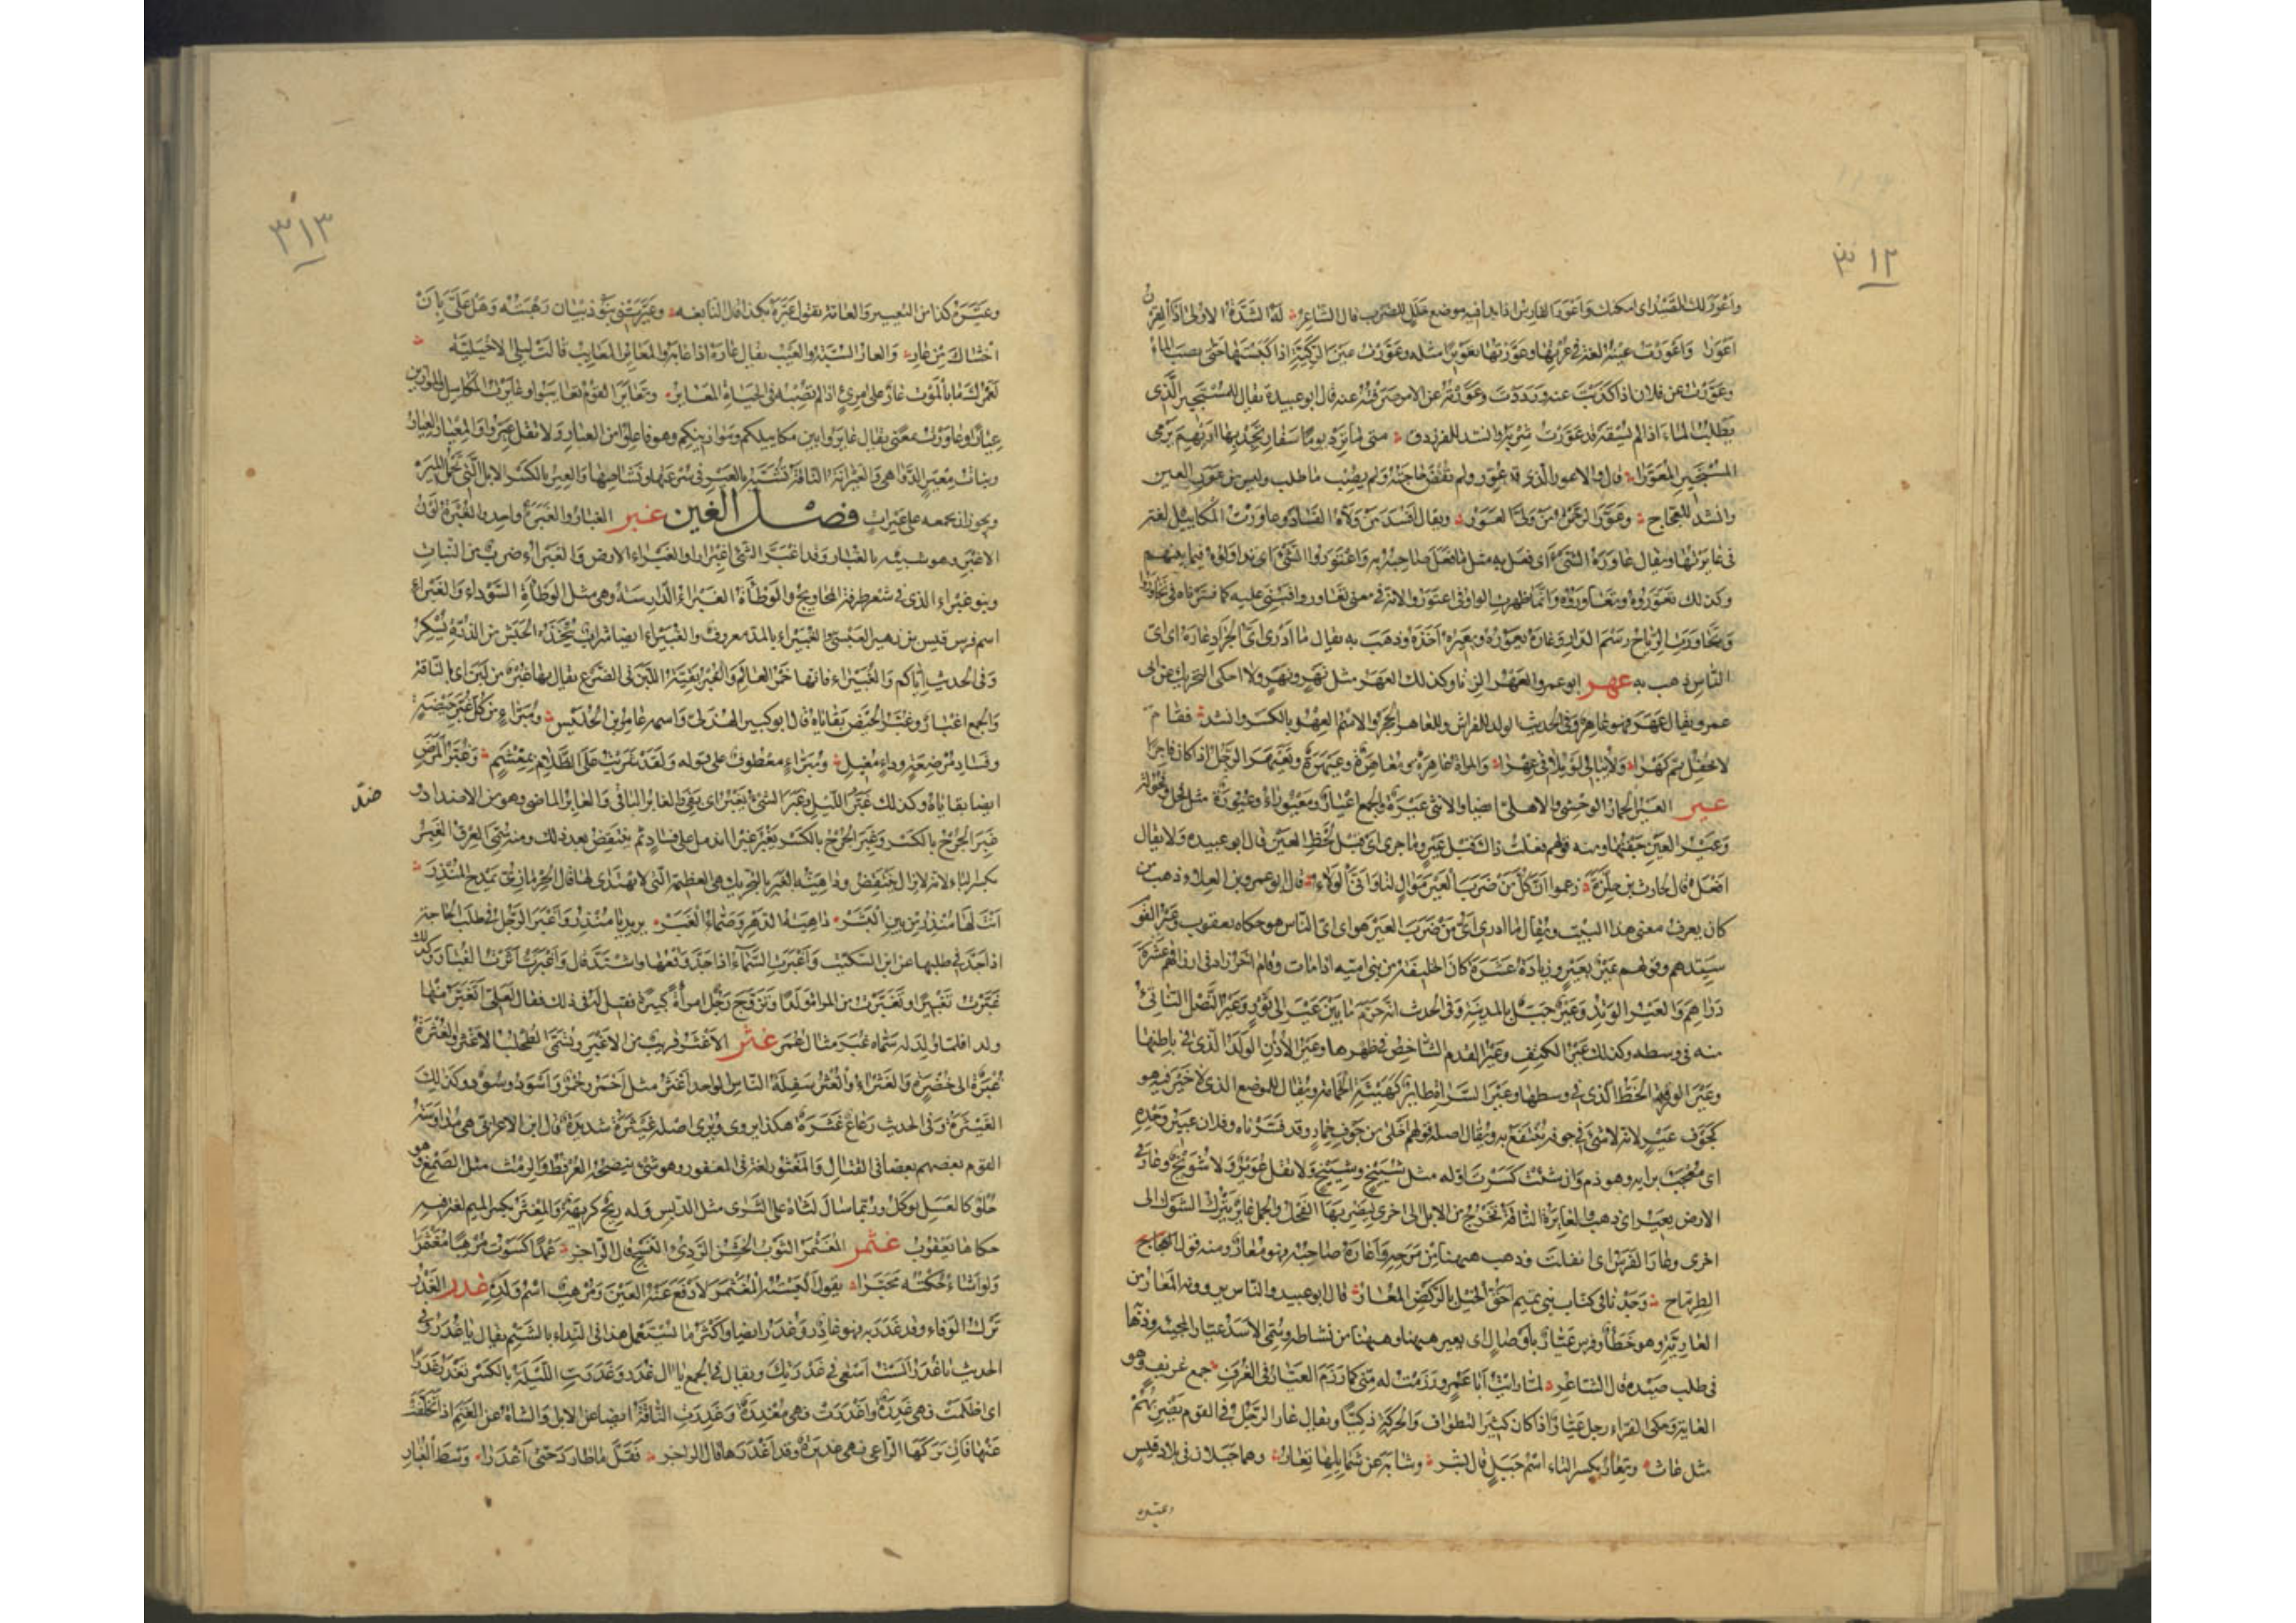 ٣١٢
واعور لك الصيد اي امكنك واعور الفارس اذا بدا فيه موضع خلل للضرب قال الشاعر له الشدة الاولى اذا القرن
اعورا واعورت عينه لغة في عرتها وعورتها تعويرا مثله وعورت عين الركية اذا كبستها حتى نضب الماء
وعورت عن فلان اذا كذبت عنه ورددت وعورته عن الامر صرفته عنه قال ابو عبيدة يقال للمستجيز الذي
يطلب الماء اذا لم يسقه قد عورت شربه وانشد للفرزدق متى ما ترد يوما سفار تجد بها اديهم يرمي
المستجيز المعورا قال والاعور الذي قد عور ولم تقض حاجته ولم يصب ما طلب وليس من عور العين
وانشد للعجاج وعور الرحمن من ولى العور ويقال افسد من ولاه الفساد وعاورت المكاييل لغة
في عايرتها ويقال عاوره الشئ اي فعل به مثل ما فعل صاحبه به واعتوروا الشئ اي تداولوه فيما بينهم
وكذلك تعوروه وتعاوروه وانما ظهرت الواو في اعتوروا لانه في معنى تعاوروا فبني عليه كما فسرناه في تجاوروا
وتعاورت الرياح رسم الدار وعاره يعوره ويعيره اخذه وذهب به يقال ما ادري اي الجراد عاره اي اي
الناس ذهب به عهر ابو عمرو العهر الزنا وكذلك العهر مثل نهر ونهر ولا احكي التحريك عن ابي
عمرو يقال عهر فهو عاهر وفي الحديث الولد للفراش وللعاهر الحجر والاسم العهر بالكسر وانشد فقام
لا يحفل ثم كهرا ولا يبالي لو يلاقي عهرا والمراة عاهرة ومعاهرة وعيهرة وتعيهر الرجل اذا كان فاجرا
عير العير الحمار الوحشي والاهلي ايضا والانثى عيرة والجمع اعيار ومعيوراء وعيورة مثل فحل وفحولة
وعير العين جفنها ومنه قولهم فعلت ذاك قبل عير وما جرى اي قبل لحظ العين قال ابو عبيدة ولا يقال
افعل قال الحارث بن حلزة زعموا ان كل من ضرب العير موال لنا وانا الولاء قال ابو عمرو بن العلاء ذهب من
كان يعرف معنى هذا البيت ويقال ما ادري اي من ضرب العير هو اي اي الناس هو حكاه يعقوب وعير القوم
سيدهم وقولهم عير بعير وزيادة عشرة كان الخليفة من بني امية اذا مات وقام اخر زاد في ارزاقهم عشرة
دراهم والعير الوتد وعير جبل بالمدينة وفي الحديث انه حرم ما بين عير الى ثور وعير النصل الناتئ
منه في وسطه وكذلك عير الكتف وعير القدم الشاخص في ظهرها وعير الاذن الوتد الذي في باطنها
وعير الورقة الخط الذي في وسطها وعير السراة طائر كهيئة الحمامة ويقال للموضع الذي لا خير فيه هو
كجوف عير لانه لا شئ في جوفه ينتفع به ويقال اصله قولهم اخلى من جوف حمار وقد فسرناه وفلان عيير وحده
اي معجب برايه وهو ذم وان شئت كسرت اوله مثل شييخ وشييخ ولا تقل عوير ولا شويخ وعار في
الارض يعير اي ذهب والعايرة الناقة تخرج من الابل الى اخرى ليضربها الفحل والجمل عاير يترك الشول الى
اخرى وعار الفرس اي انفلت وذهب ههنا من مرحه واعاره صاحبه فهو معار ومنه قول
الطرماح وجدنا في كتاب بني تميم احق الخيل بالركض المعار قال ابو عبيد والناس يروونه المعار من
العارية وهو خطأ وفرس عيار باوصال اي يعير ههنا وههنا من نشاطه وسمي الاسد عيارا لمجيئه وذهابه
في طلب صيده قال الشاعر لما رايت ابا عمرو رزمت له مني كما رزم العيار في الغرف جمع غريف وهو
الغابة وحكى الفراء رجل عيار اذا كان كثير التطواف والحركة ذكيا ويقال عار الرجل في القوم يضربهم
مثل عاث وتعار بكسر التاء اسم جبل قال بشر وشابة عن شمايلها تعار وهما جبلان في بلاد قيس
وعيره
٣١٣
وعيره كذا من التعيير والعامة تقول عيره بكذا قال النابغة وعيرتني بنو ذبيان رهبته وهل علي بان
اخشاك من عار والعار السبة والعيب يقال عاره اذا عابه والمعاير المعايب قالت ليلى الاخيلية
لعمرك ما بالموت عار على امرئ اذا لم تصبه في الحياة المعاير وتعاير القوم تعايبوا وعايرت المكاييل والموازين
عيارا وعاورت بمعنى يقال عايروا بين مكاييلكم وموازينكم وهو فاعلوا من العيار ولا تقل عيروا والمعيار العيار
وبنات معير الدواهي والعيرانة الناقة تشبه بالعير في سرعتها ونشاطها والعير بالكسر الابل التي تحمل الميرة
ويجوز ان تجمعه على عيرات فصل الغين غبر الغبار والغبرة واحد والغبرة لون
الاغبر وهو شبيه بالغبار وقد اغبر الشئ اغبرارا والغبراء الارض والغبراء ضرب من النبات
وبنو غبراء الذي في شعر طرفة المحاويج والوطأة الغبراء الدارسة وهي مثل الوطأة السوداء والغبراء
اسم فرس قيس بن زهير العبسي والغبيراء بالمد معروف والغبيراء ايضا شراب يتخذه الحبش من الذرة يسكر
وفي الحديث اياكم والغبيراء فانها خمر العالم والغبر بقية اللبن في الضرع يقال بها غبر من لبن اي بالناقة
والجمع اغبار وغبر الحيض بقاياه قال ابو كبير الهذلي واسمه عامر بن الحليس ومبرإ من كل غبر حيضة
وفساد مرضعة وداء مغيل ومبرإ معطوف على قوله ولقد سريت على الظلام بمغشم وغبر المرض
ايضا بقاياه وكذلك غبر الليل وغبر الشئ يغبر اي بقي والغابر الباقي والغابر الماضي وهو من الاضداد و
ضد
غبر الجرح بالكسر يغبر غبرا اندمل على فساد ثم ينتقض بعد ذلك ومنه سمي العرق الغبر
بكسر الباء لانه لا يزال ينتقض وداهية الغبر بالتحريك هي العظيمة التي لا يهتدى لها قال الحرمازي يمدح المنذر
انت لها منذر من بين البشر داهية الدهر وصماء الغبر يريد يا منذر واغبر الرجل في طلب الحاجة
اذا جد في طلبها عن ابن السكيت واغبرت السماء اذا جد وقعها واشتد قال واغبرت اثرت الغبار وكذلك
غبرت تغبيرا وتغبرت من المراة ولدا وتزوج رجل امراة كبيرة فقيل له في ذلك فقال لعلي اتغبر منها
ولدا فلما ولد له سماه غبر مثال عمر غثر الاغثر قريب من الاغبر ويسمى الطحلب الاغثر والغثرة
غبرة الى خضرة والغثراء والغثر سفلة الناس الواحد اغثر مثل احمر وحمر واسود وسود وكذلك
الغيثرة وفي الحديث رعاع غثرة هكذا يروى ونرى اصله غيثرة شديدة قال ابن الاعرابي هي مداوسة
القوم بعضهم بعضا في القتال والمغثور لغة في المغفور وهو شئ ينضحه العرفط والرمث مثل الصمغ وهو
حلو كالعسل يوكل وربما سال لثاه على الثرى مثل الدبس وله ريح كريهة والمغثر بكسر الميم لغة فيه
حكاها يعقوب غثمر المغثمر الثوب الخشن الردئ النسج قال الراجز عمدا كسوت مرهبا مغثمرا
ولو اشاء حكته محبرا يقول البسته المغثمر لادفع عنه العين ومرهب اسم ولده غدر الغدر
ترك الوفاء وقد غدر به فهو غادر وغدر ايضا واكثر ما يستعمل هذا في النداء بالشتم يقال يا غدر وفي
الحديث يا غدر الست اسعى في غدرتك ويقال في الجمع يا ال غدر وغدرت الليلة بالكسر تغدر غدرا
اي اظلمت فهي غدرة واغدرت فهي مغدرة وغدرت الناقة ايضا عن الابل والشاة عن الغنم اذا تخلفت
عنها فان تركها الراعي فهي غديرة وقد اغدرها قال الراجز فقل ما طارد حتى اغدرا وسط الغبار